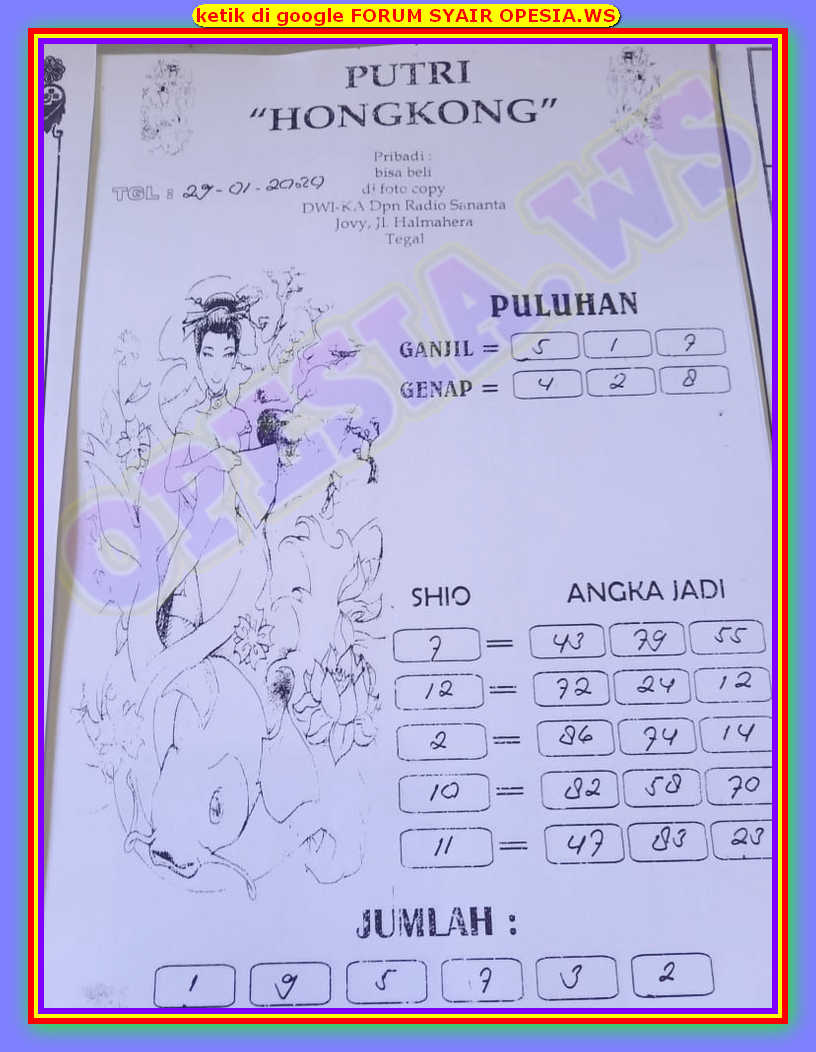 ketik di google FORUM SYAIR OPESIA.WS
PUTRI
“HONGKONG”
Pribadi :
bisa beli
di foto copy
TGL : 29-01-2020
DWI-KA Dpn Radio Sananta
Jovy, Jl. Halmahera
Tegal
OPESIA.WS
PULUHAN
GANJIL = 5 1 7
GENAP = 4 2 8
SHIO ANGKA JADI
7 = 43 79 55
12 = 72 24 12
2 = 86 74 14
10 = 82 58 70
11 = 47 83 23
JUMLAH :
1 9 5 7 3 2